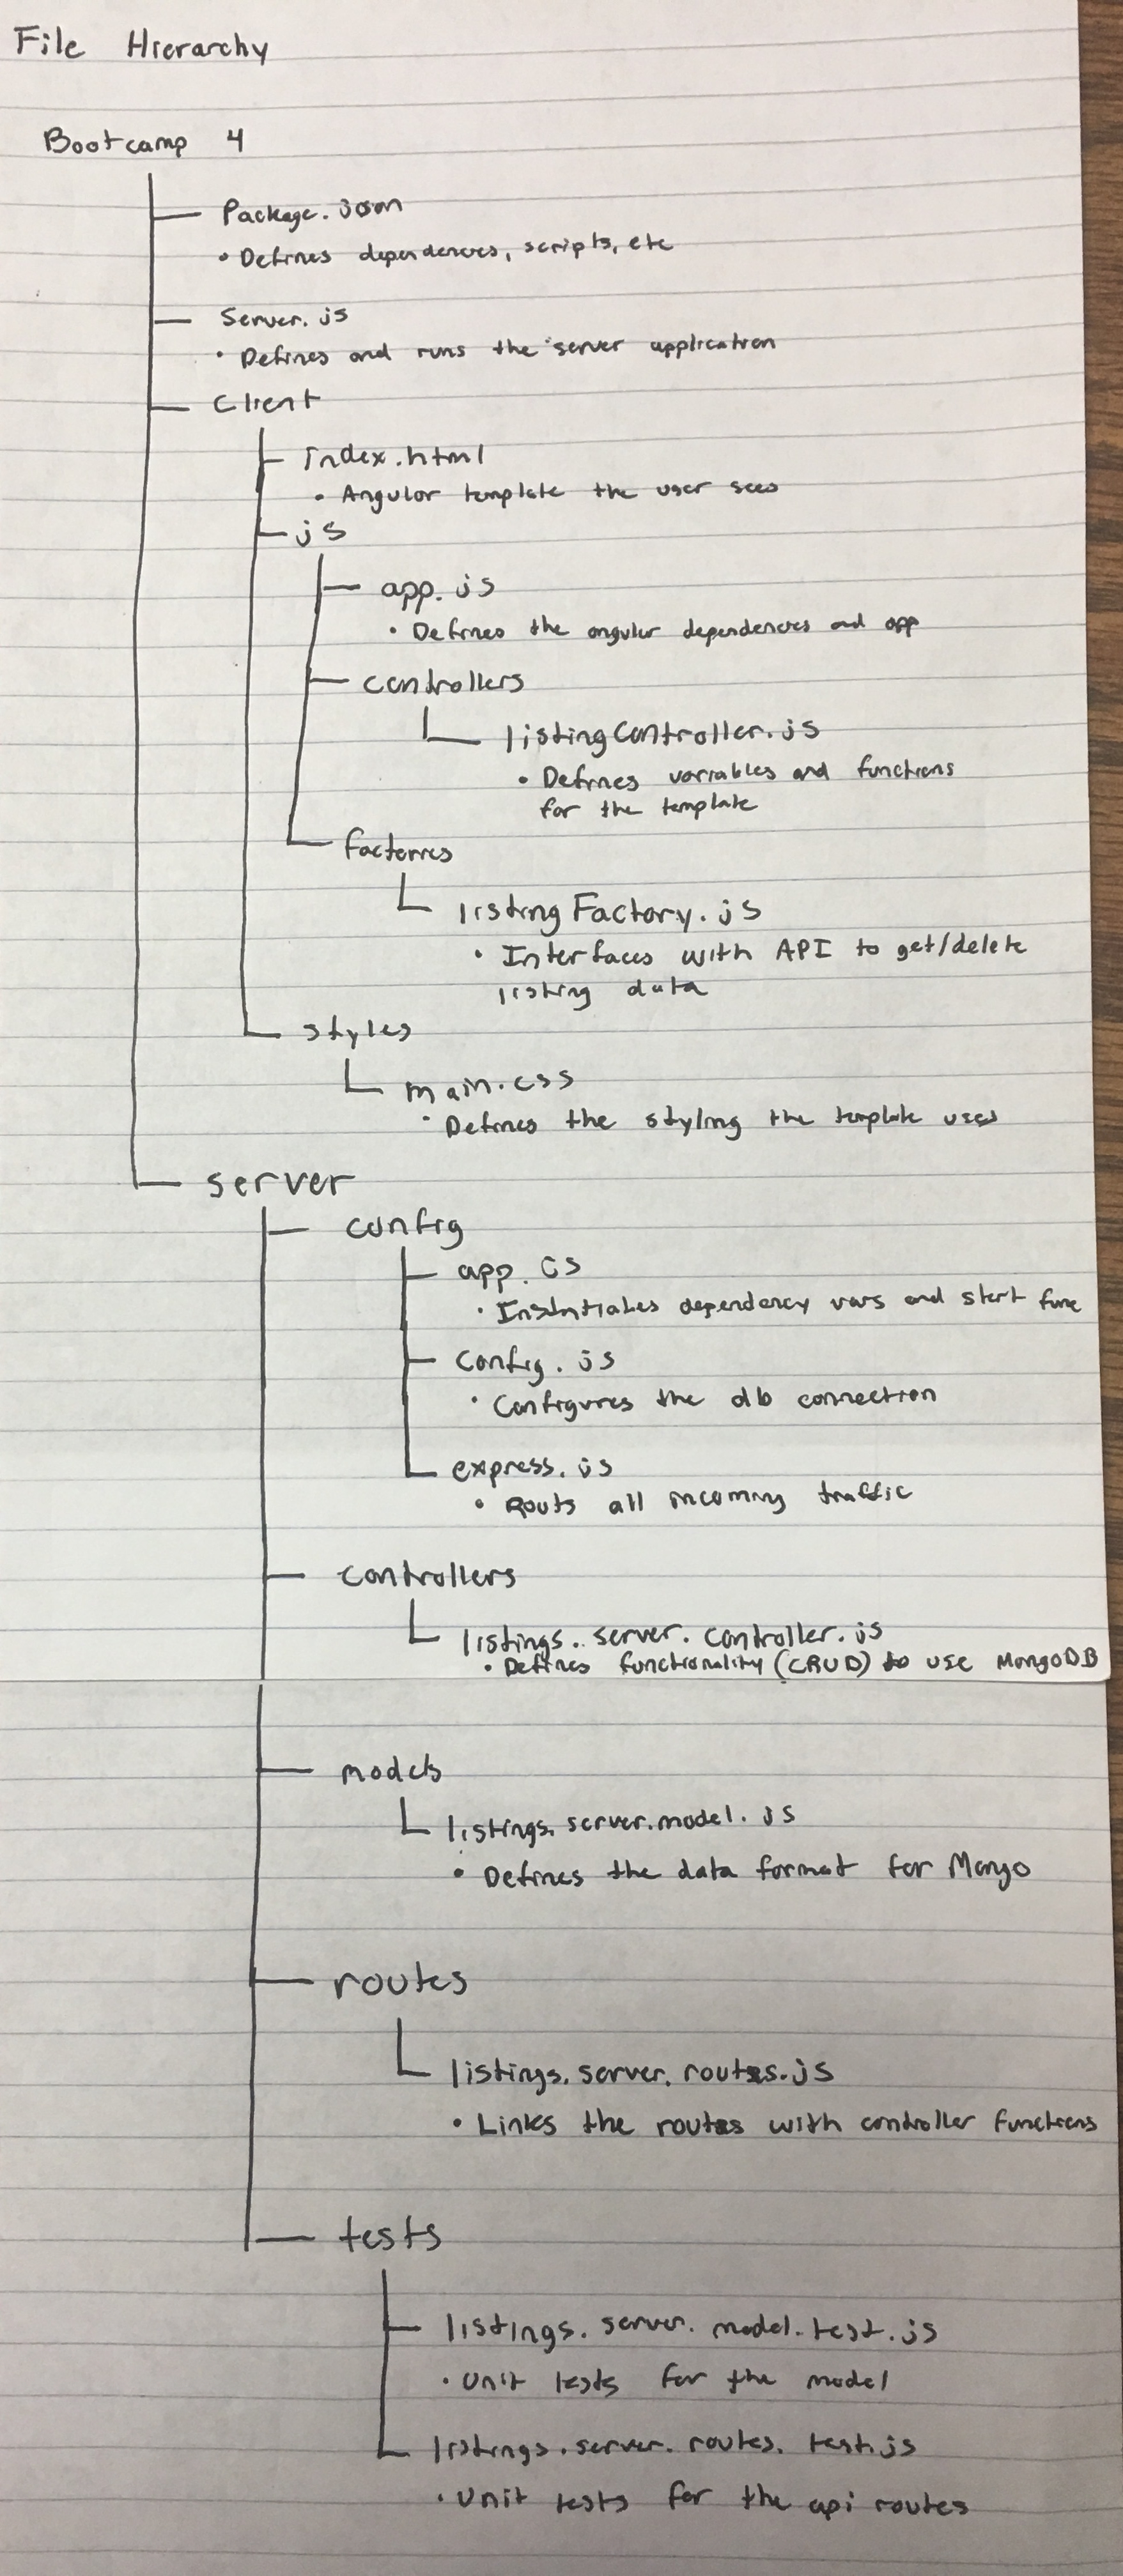 File Hierarchy
Bootcamp 4
Package.json
• Defines dependencies, scripts, etc
Server.js
• Defines and runs the server application
Client
index.html
• Angular template the user sees
js
app.js
• Defines the angular dependencies and app
controllers
listingController.js
• Defines variables and functions
for the template
factories
listingFactory.js
• Interfaces with API to get/delete
listing data
styles
main.css
• Defines the styling the template uses
server
config
app.js
• Instntiates dependency vars and start func
Config.js
• Configures the db connection
express.js
• Routs all incoming traffic
controllers
listings.server.controller.js
• Defines functionality (CRUD) to use MongoDB
models
listings.server.model.js
• Defines the data format for Mongo
routes
listings.server.routes.js
• Links the routes with controller functions
tests
listings.server.model.test.js
• Unit tests for the model
listings.server.routes.test.js
• Unit tests for the api routes